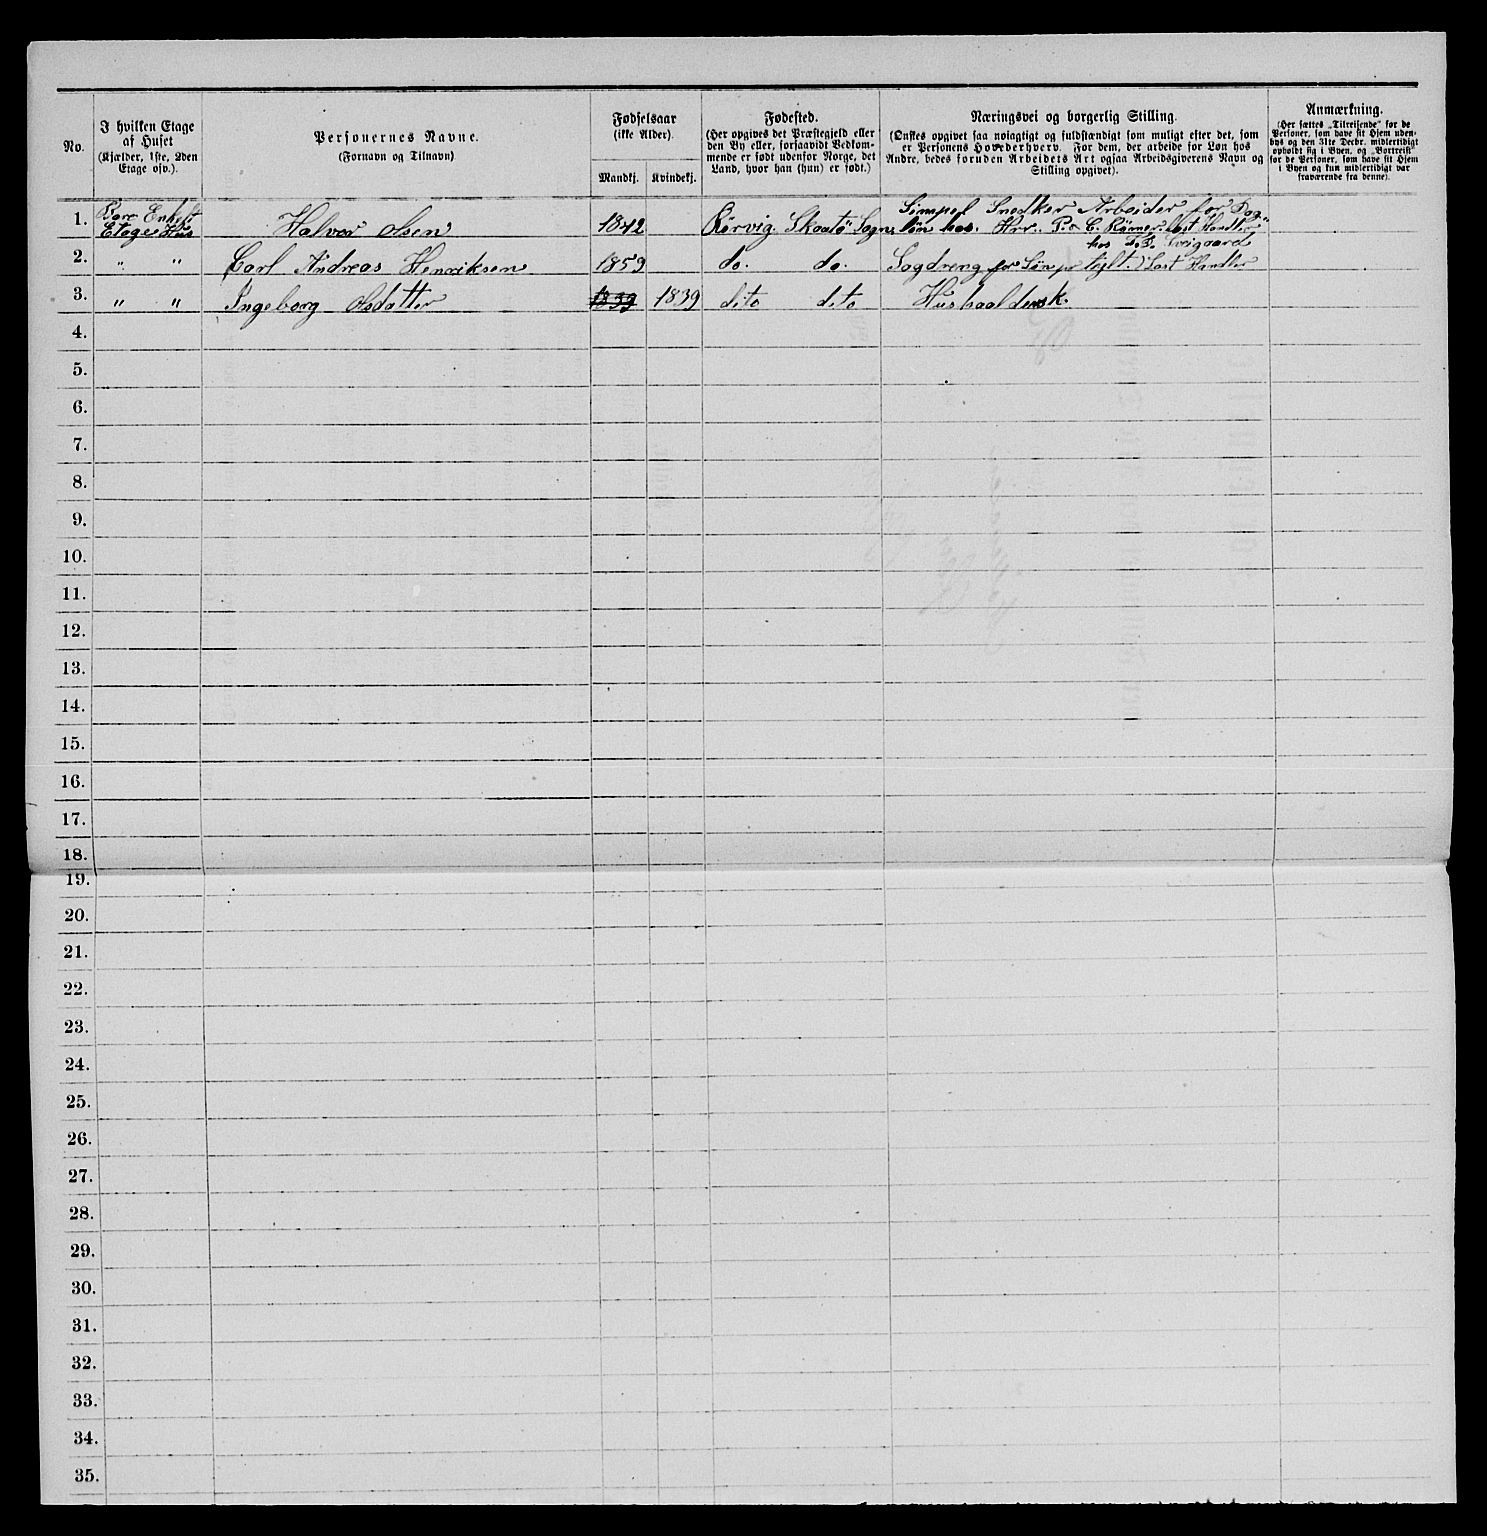 No.
I hvilken Etage
af Huset
(Kjælder, 1ste, 2den
Etage osv.).
Personernes Navne.
(Fornavn og Tilnavn)
Fødselsaar
(ikke Alder).
Mandkj.
Kvindekj.
Fødested.
(Her opgives det Præstegjeld eller
den By eller, forsaavidt Vedkom-
mende er født udenfor Norge, det
Land, hvor han (hun) er født.)
Næringsvei og borgerlig Stilling.
(Ønskes opgivet saa nøiagtigt og fuldstændigt som muligt efter det, som
er Personens Hovederhverv. For dem, der arbeide for Løn hos
Andre, bedes foruden Arbeidets Art ogsaa Arbeidsgiverens Navn og
Stilling opgivet).
Anmærkning.
(Her sættes „Tilreisende“ for de
Personer, som have sit Hjem uden-
bys og den 31te Decbr. midlertidigt
opholdt sig i Byen, og „Bortreist“
for de Personer, som have sit Hjem
i Byen og kun midlertidigt var
fraværende fra denne).
1. Bare Enkelt
Etage Hus Halvor Olsen 1842 Rørvig. Skaatö Sogn Simpel Snedker Arbeider for Dag-
løn hos. Hrr. P. C. Rømer
2. " " Carl Andreas Henriksen 1859 do. do. Sagdreng for Løn
3. " " Ingeborg Olsdatter 1839 1839 dito dito Husholdersk.
4.
5.
6.
7.
8.
9.
10.
11.
12.
13.
14.
15.
16.
17.
18.
19.
20.
21.
22.
23.
24.
25.
26.
27.
28.
29.
30.
31.
32.
33.
34.
35.